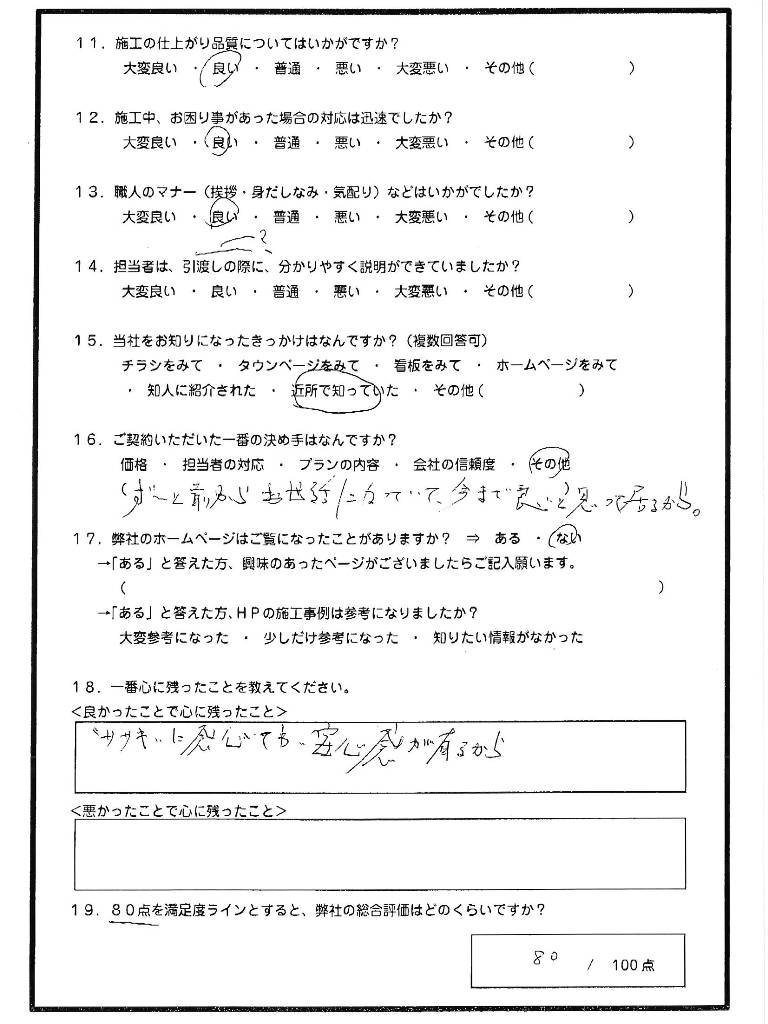 11．施工の仕上がり品質についてはいかがですか？
大変良い ・ 良い ・ 普通 ・ 悪い ・ 大変悪い ・ その他（ ）
12．施工中、お困り事があった場合の対応は迅速でしたか？
大変良い ・ 良い ・ 普通 ・ 悪い ・ 大変悪い ・ その他（ ）
13．職人のマナー（挨拶・身だしなみ・気配り）などはいかがでしたか？
大変良い ・ 良い ・ 普通 ・ 悪い ・ 大変悪い ・ その他（ ）
?
14．担当者は、引渡しの際に、分かりやすく説明ができていましたか？
大変良い ・ 良い ・ 普通 ・ 悪い ・ 大変悪い ・ その他（ ）
15．当社をお知りになったきっかけはなんですか？（複数回答可）
チラシをみて ・ タウンページをみて ・ 看板をみて ・ ホームページをみて
・ 知人に紹介された ・ 近所で知っていた ・ その他（ ）
16．ご契約いただいた一番の決め手はなんですか？
価格 ・ 担当者の対応 ・ プランの内容 ・ 会社の信頼度 ・ その他
（ずーと前からお世話になっていて、今まで良いと思って居るから。
17．弊社のホームページはご覧になったことがありますか？ ⇒ ある ・ ない
→「ある」と答えた方、興味のあったページがございましたらご記入願います。
（ ）
→「ある」と答えた方、ＨＰの施工事例は参考になりましたか？
大変参考になった ・ 少しだけ参考になった ・ 知りたい情報がなかった
18．一番心に残ったことを教えてください。
＜良かったことで心に残ったこと＞
〝ササキ〟に 安心感が有るから
＜悪かったことで心に残ったこと＞
19．80点を満足度ラインとすると、弊社の総合評価はどのくらいですか？
80 / 100点